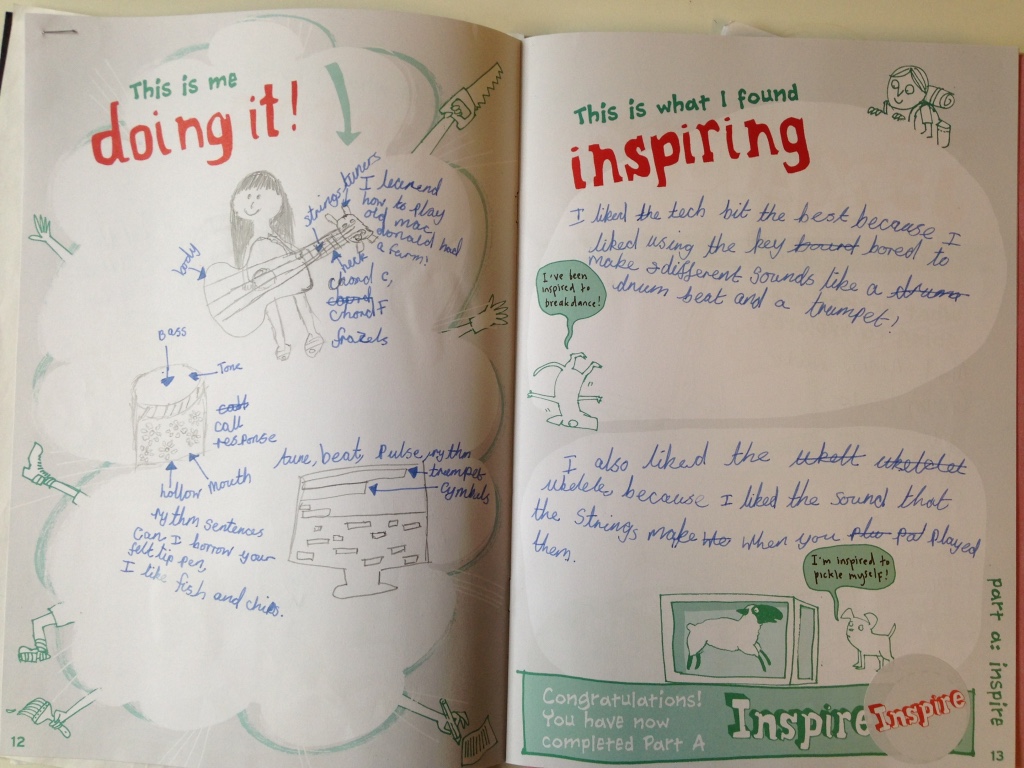 This is me
doing it!
strings
tuners
I lecerend
how to play
old mac
donald had
a farm!
body
neck
chord c,
chord F
frazels
Bass
Tone
call
response
hollow mouth
rythm sentences
Can I borrow your
felt tip pen,
I like fish and chips.
tune, beat, Pulse, rythm
trumpet
cymbals
12
This is what I found
inspiring
I liked the tech bit the best because I
liked using the key bound bored to
make different sounds like a
drum beat and a trumpet!
I've been
inspired to
breakdance!
I also liked the ukelelet
ukelele, because I liked the sound that
the strings make when you played
them.
I'm inspired to
pickle myself!
Congratulations!
You have now
completed Part A
Inspire
Inspire
part a: inspire
13